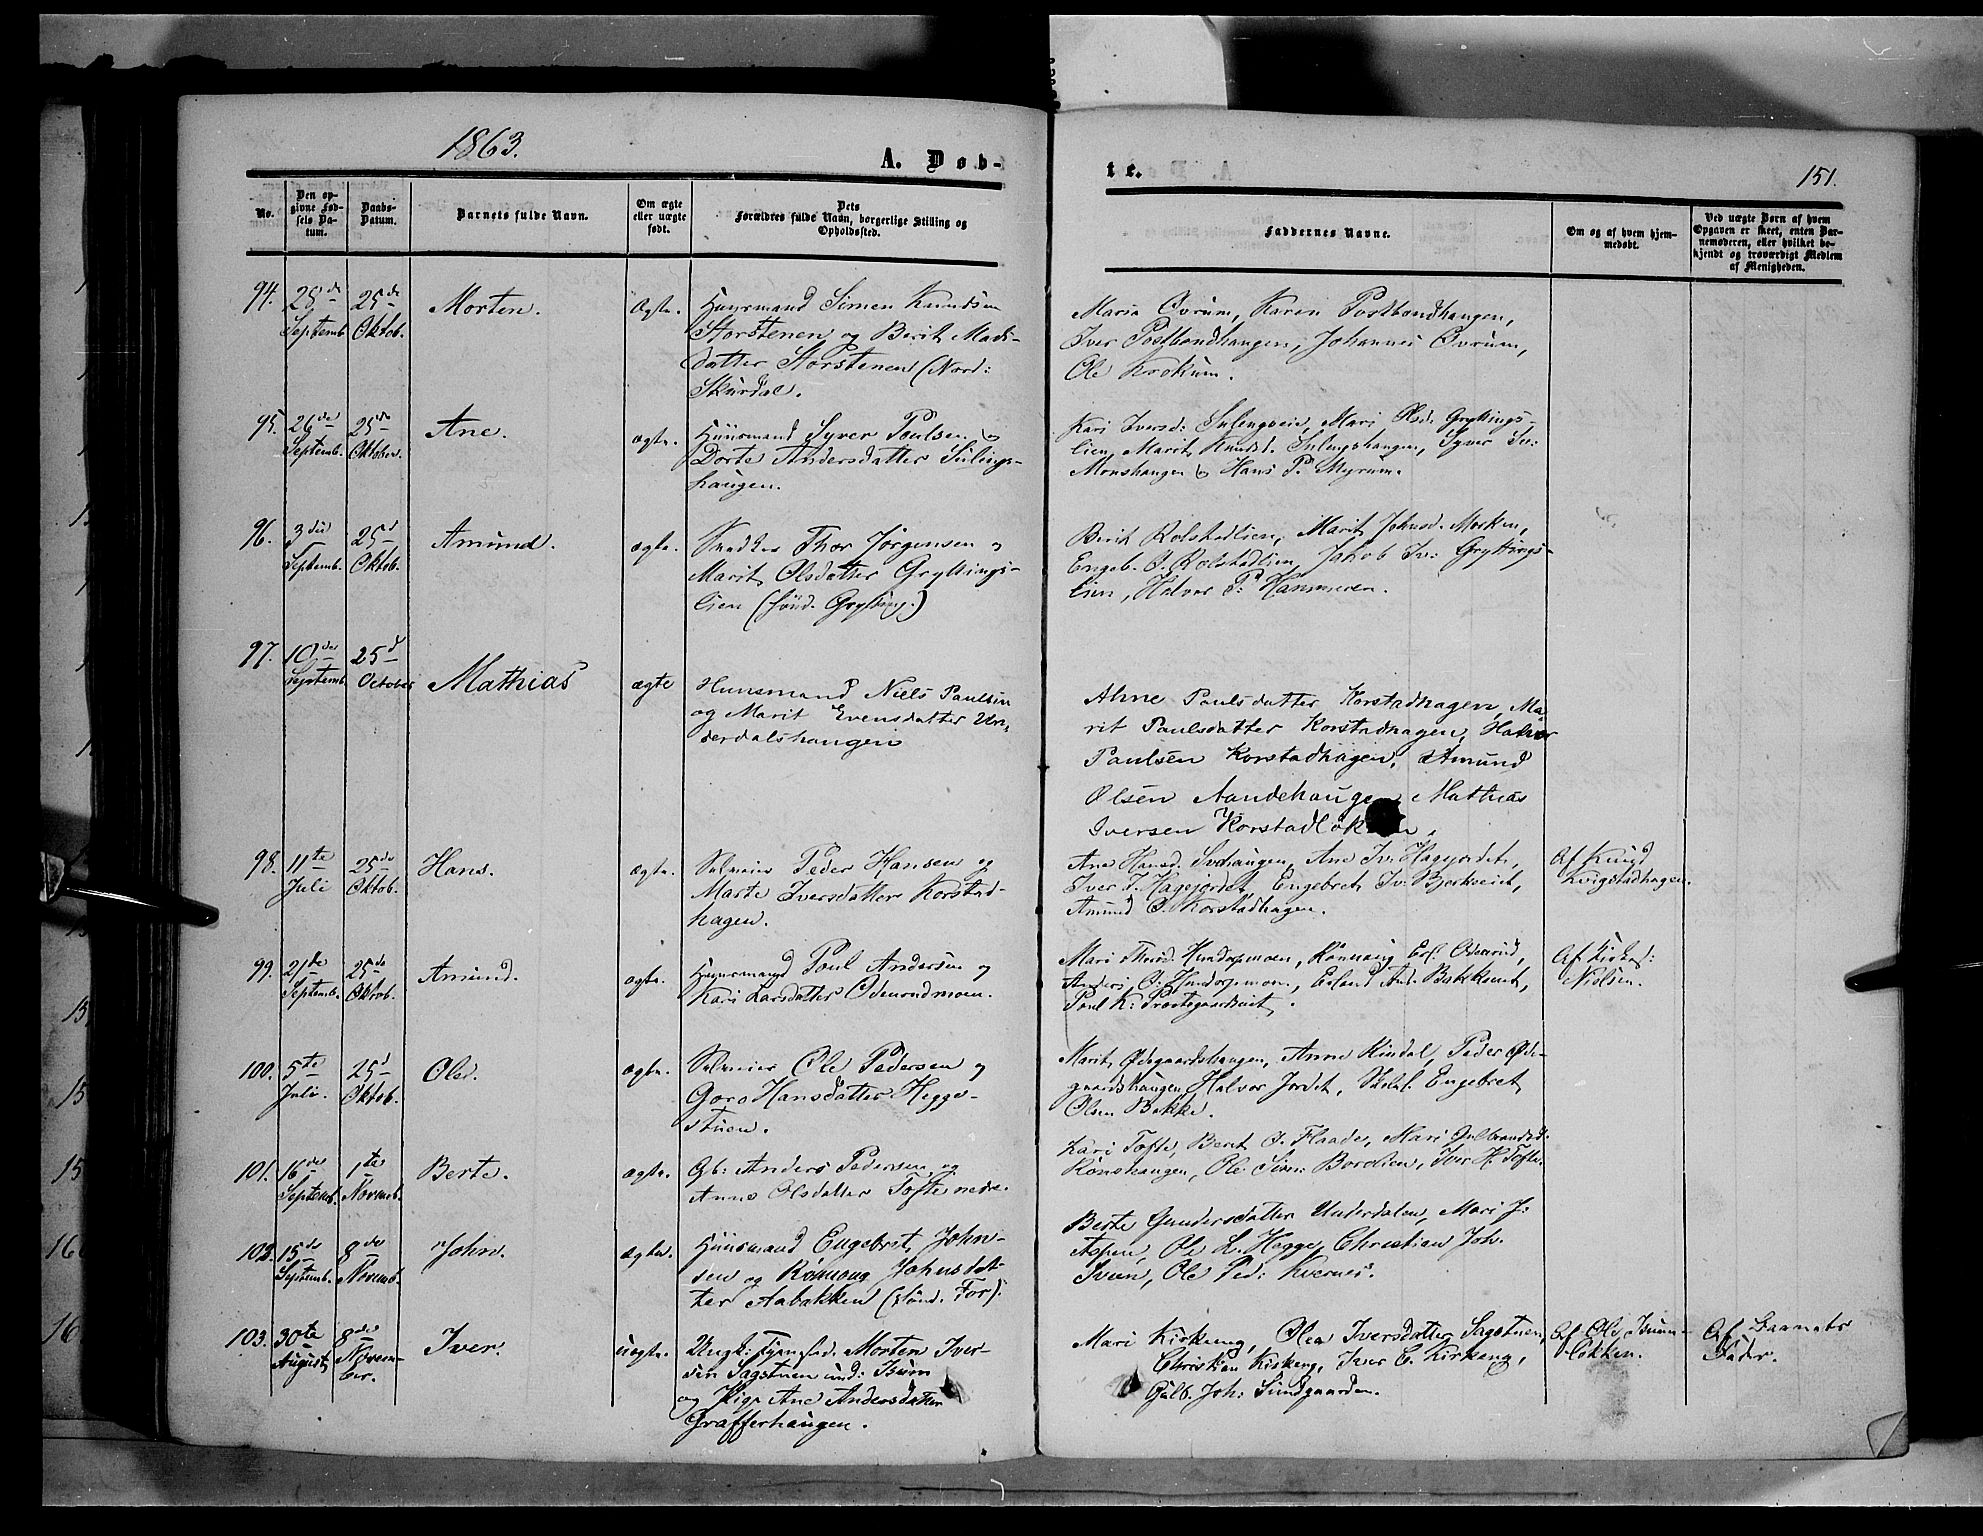 1863.
A. Døb-
te.
151.
No.
Den op-
givne Fød-
sels Da-
tum.
Daabs-
Datum.
Barnets fulde Navn.
Om ægte
eller uægte
født.
Dets
Forældres fulde Navn, borgerlige Stilling og
Opholdssted.
Faddernes Navne.
Om og af hvem hjem-
medøbt.
Ved uægte Børn af hvem
Opgaven er skeet, enten Bar-
nemoderen, eller hvilket be-
kjendt og troværdigt Medlem
af Menigheden.
94. 28de Septemb. 25de Oktob. Morten. Ægte. Huusmand Simen Knudsen
Storstenen og Berit Mads-
datter Storstenen (Nord:
Skurdal.
Maria Ovrum, Karen Postbondhaugen,
Iver Postbondhaugen, Johannes Ovrum,
Ole Krokum.
95. 26de Septemb. 25de Oktober. Ane. ægte. Huusmand Syver Poulsen og
Dorte Andersdatter Sulings-
haugen.
Kari Iversd: Sulengveie, Mari Olsd: Gryttings-
lien, Marit Knudsd. Sulengshaugen, Syver
Monshaugen og Hans P. Myrum.
96. 3die Septemb. 25d Oktob. Amund. ægte. Snedker Thor Jørgensen og
Marit Olsdatter Gryttings-
lien (sønd. Grytting.)
Berit Rolstadlien, Marit Johnsd. Morken,
Engeb. O. Rolstadlien, Jakob Iv: Gryttings-
lien, Halvor P: Hammeren.
97. 10de Septemb. 25d October Mathias ægte Huusmand Niels Paulsen
og Marit Evensdatter Un-
derdalshaugen
Ahne Poulsdatter Korstadhagen, Ma-
rit Paulsdatter Korstadhagen, Halvor
Paulsen Korstadhagen, Amund
Olsen Aandehaugen Mathias
Iversen Korstadløkken,
98. 11te Juli 25de Oktob. Hans. ægte. Selveier Peder Hansen og
Marte Iversdatter Korstad-
hagen.
Ane Hansd. Svehaugen, Ane Iv: Hagejordet,
Iver I. Hagejordet, Engebret Iv: Bjerkveiet,
Amund O. Korstadhagen.
Af Knud
Kvigstadhagen.
99. 21de Septemb. 25de Oktob. Amund. ægte. Huusmand Poul Andersen og
Kari Larsdatter Odenrudmoen.
Mari Thord. Hundorpmoen, Rønnaug Erl. Odenrud,
Anders O. Hundorpmoen, Erland And. Bakkenet,
Poul K: Prestegaardseiet.
Af Kirkes:
Nielsen.
100. 5te Juli. 25d Oktob. Ole. ægte. Selveier Ole Pedersen og
Goro Hansdatter Hegge-
stuen.
Marit Ødegaardshaugen, Anne Kindal, Peder Øde-
gaardshaugen, Halvor Jordet, Skolel. Engebret
Olsen Bakke.
101. 16de Septemb. 1te Novemb. Berte. ægte. Gb: Anders Pedersen og
Anne Olsdatter Tofte nedre.
Kari Tofte, Berit O. Flaade, Mari Gulbrandsd.
Rønshaugen, Ole Sim: Bordlien, Iver H. Tofte.
102. 15de Septemb. 8de Novemb. John. ægte. Huusmand Engebret John-
sen og Rønnaug Johnsdat-
ter Aabakken (sønd. For).
Berte Gundersdatter Underdalen, Mari J:
Aspen, Ole L. Hegge, Christian Joh.
Iveen, Ole Ped: Kvernes.
103. 30te August 8de Novem-
ber. Iver. uægte. Ungk: Tjenestd. Morten Iver-
sen Sagstuen und: Buum
og Pige Ane Andersdatter
Grafferhaugen.
Mari Kirkeng, Olea Iversdatter Sagstuen,
Christian Kirkeng, Iver C. Kirkeng,
Gulb. Joh: Sundgaarden.
Af Ole Buum-
løkken.
Af Barnets
Fader.